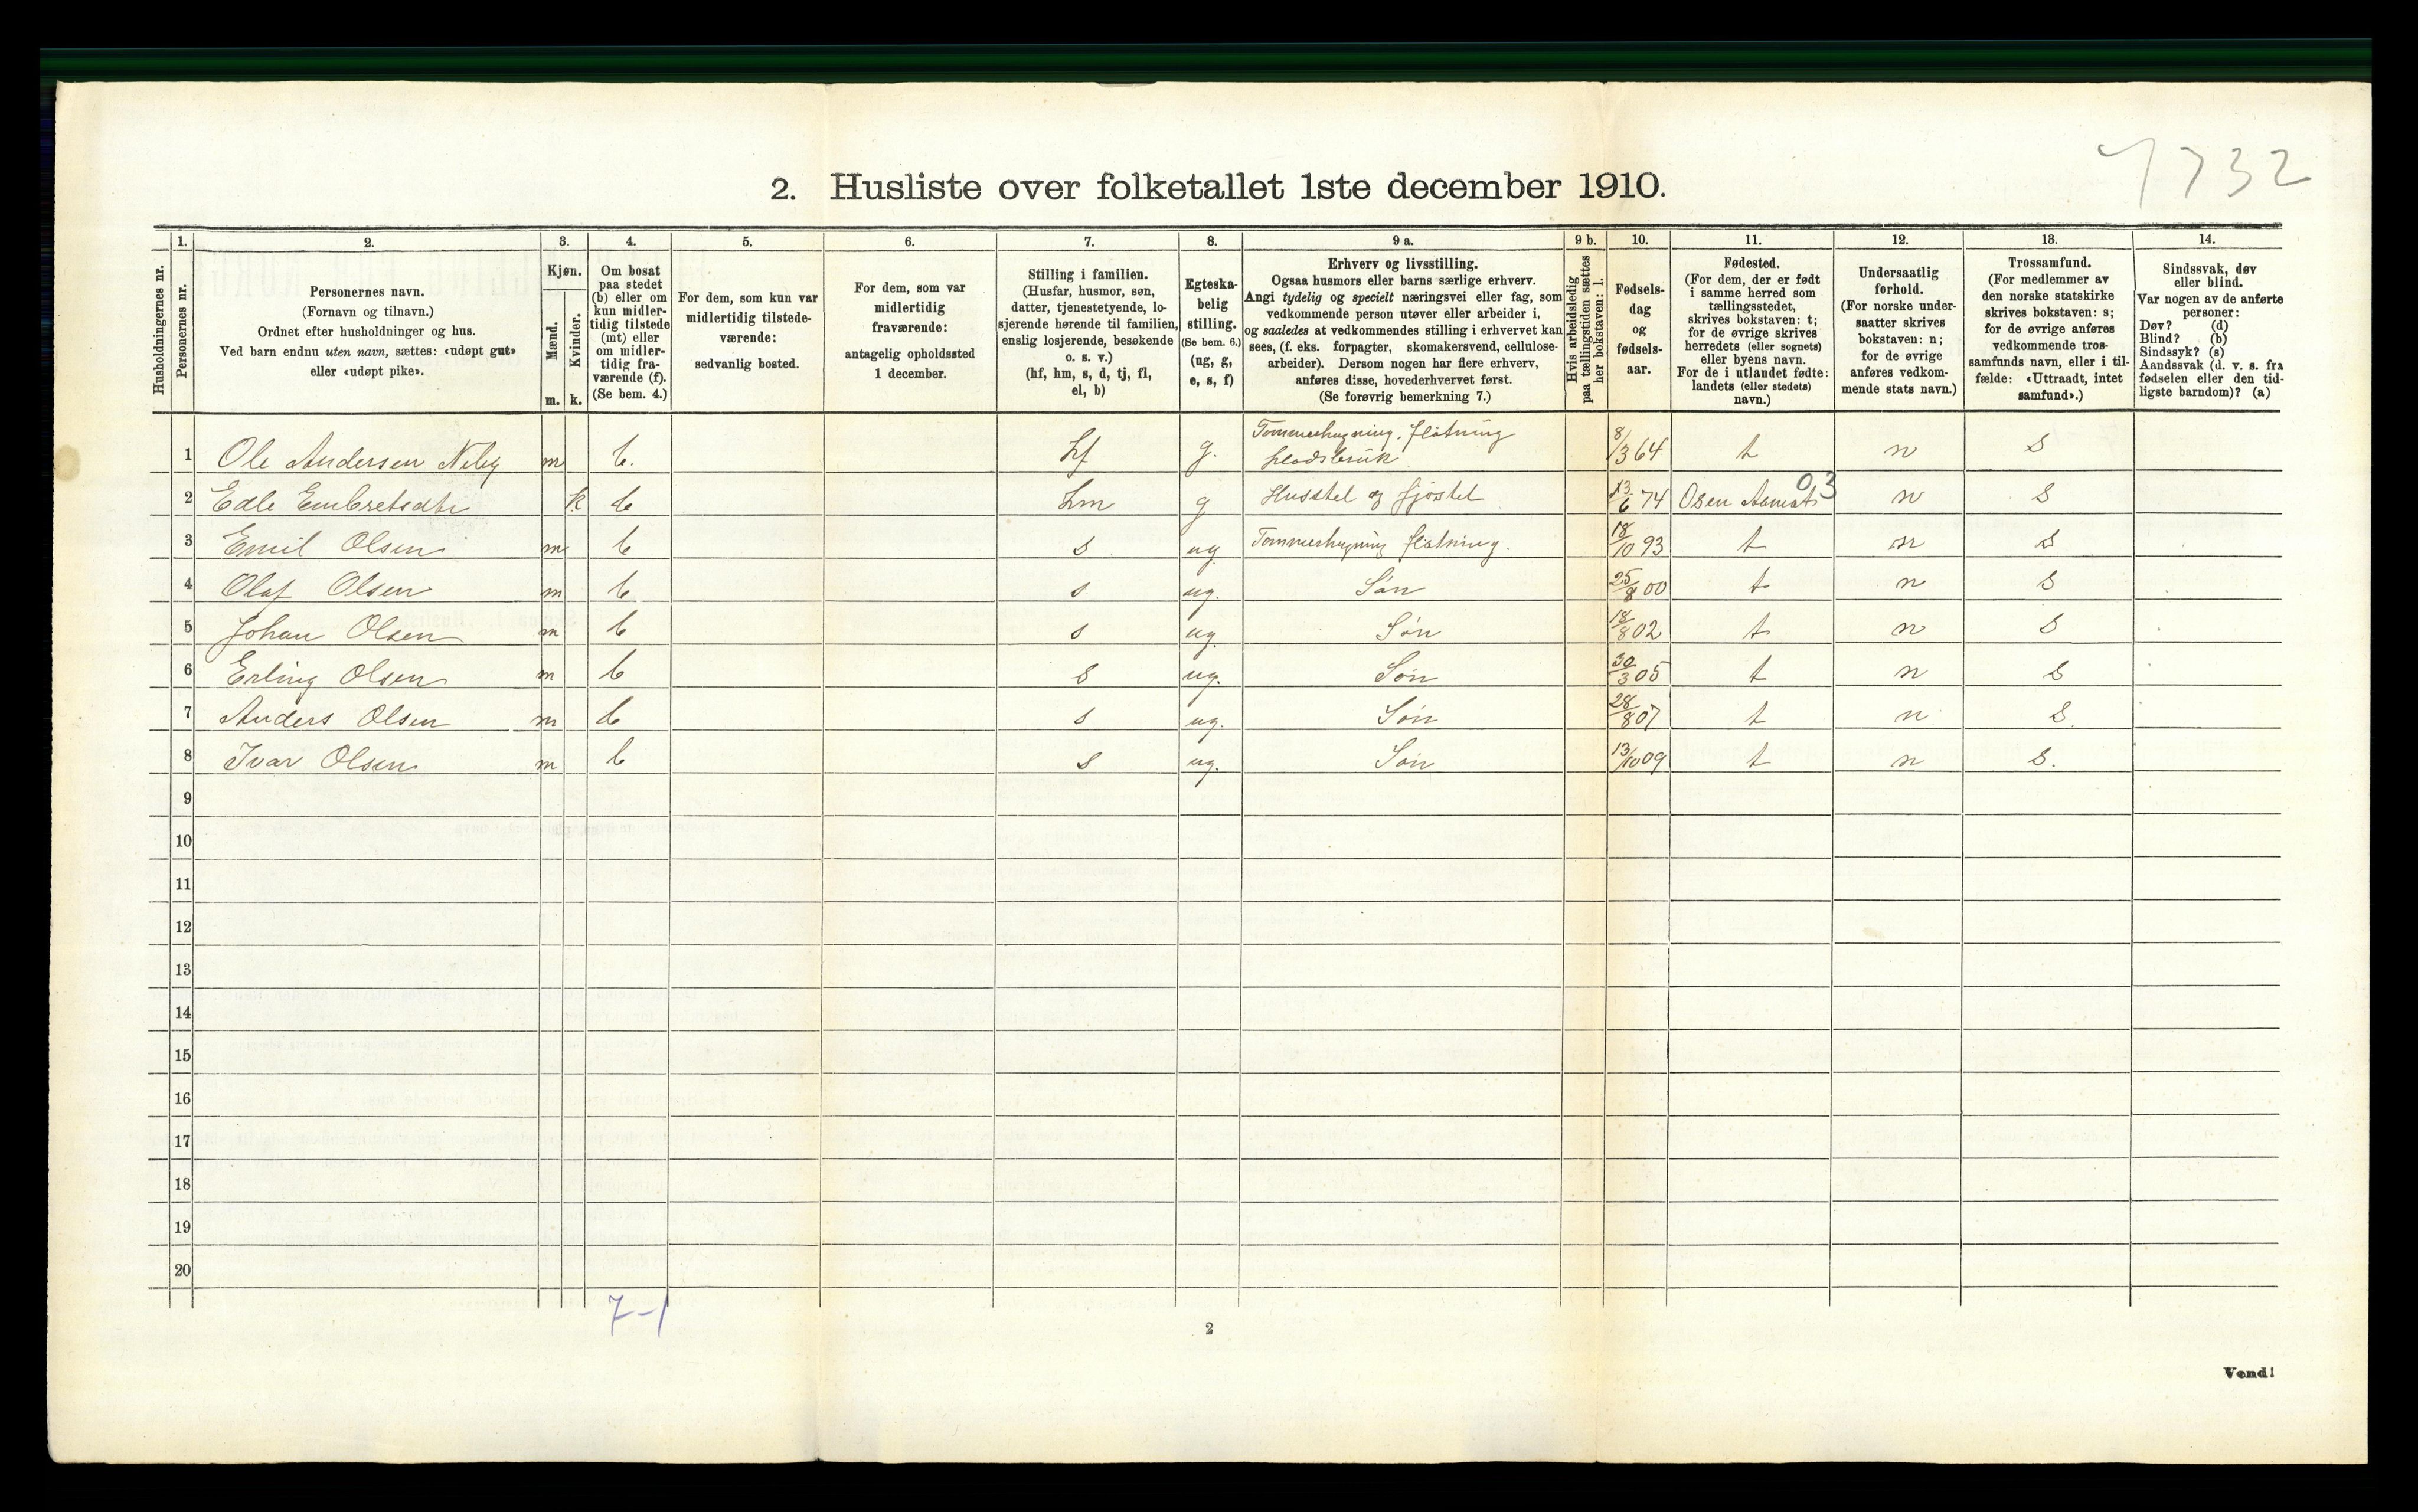 7732
2. Husliste over folketallet 1ste december 1910.
Husholdningernes nr.
1.
Personernes nr.
2.
Personernes navn.
(Fornavn og tilnavn.)
Ordnet efter husholdninger og hus.
Ved barn endnu uten navn, sættes: «udøpt gut»
eller «udøpt pike».
3.
Kjøn.
Mænd.
Kvinder.
m. k.
4.
Om bosat
paa stedet
(b) eller om
kun midler-
tidig tilstede
(mt) eller
om midler-
tidig fra-
værende (f).
(Se bem. 4.)
5.
For dem, som kun var
midlertidig tilstede-
værende:
sedvanlig bosted.
6.
For dem, som var
midlertidig
fraværende:
antagelig opholdssted
1 december.
7.
Stilling i familien.
(Husfar, husmor, søn,
datter, tjenestetyende, lo-
sjerende hørende til familien,
enslig losjerende, besøkende
o. s. v.)
(hf, hm, s, d, tj, fl,
el, b)
8.
Egteska-
belig
stilling.
(Se bem. 6.)
(ug, g,
e, s, f)
9 a.
Erhverv og livsstilling.
Ogsaa husmors eller barns særlige erhverv.
Angi tydelig og specielt næringsvei eller fag, som
vedkommende person utøver eller arbeider i,
og saaledes at vedkommendes stilling i erhvervet kan
sees, (f. eks. forpagter, skomakersvend, cellulose-
arbeider). Dersom nogen har flere erhverv,
anføres disse, hovederhvervet først.
(Se forøvrig bemerkning 7.)
9 b.
Hvis arbeidsledig
paa tællingstiden sættes
her bokstaven: l.
10.
Fødsels-
dag
og
fødsels-
aar.
11.
Fødested.
(For dem, der er født
i samme herred som
tællingsstedet,
skrives bokstaven: t;
for de øvrige skrives
herredets (eller sognets)
eller byens navn.
For de i utlandet fødte:
landets (eller stedets)
navn.)
12.
Undersaatlig
forhold.
(For norske under-
saatter skrives
bokstaven: n;
for de øvrige
anføres vedkom-
mende stats navn.)
13.
Trossamfund.
(For medlemmer av
den norske statskirke
skrives bokstaven: s;
for de øvrige anføres
vedkommende tros-
samfunds navn, eller i til-
fælde: «Uttraadt, intet
samfund».)
14.
Sindssvak, døv
eller blind.
Var nogen av de anførte
personer:
Døv? (d)
Blind? (b)
Sindssyk? (s)
Aandssvak (d. v. s. fra
fødselen eller den tid-
ligste barndom)? (a)
1 Ole Andersen Neby m b. hf g. Tømmerhugning, fløtning
Leodsbruk 8/3 64 t n s
2 Edle Embretsdtr k b hm g Husstel og fjøsstel 13/6 74 Osen Aamot 03 n s
3 Emil Olsen m b s ug Tømmerhugning fløtning. 18/10 93 t n s
4 Olaf Olsen m b s ug. Søn 25/8 00 t n s
5 Johan Olsen m b s ug. Søn 18/8 02 t n s
6 Erling Olsen m b s ug. Søn 30/3 05 t n s
7 Anders Olsen m b s ug. Søn 28/8 07 t n s.
8 Ivar Olsen m b s ug. Søn 13/10 09 t n s.
9
10
11
12
13
14
15
16
17
18
19
20
7-1
2
Vend!